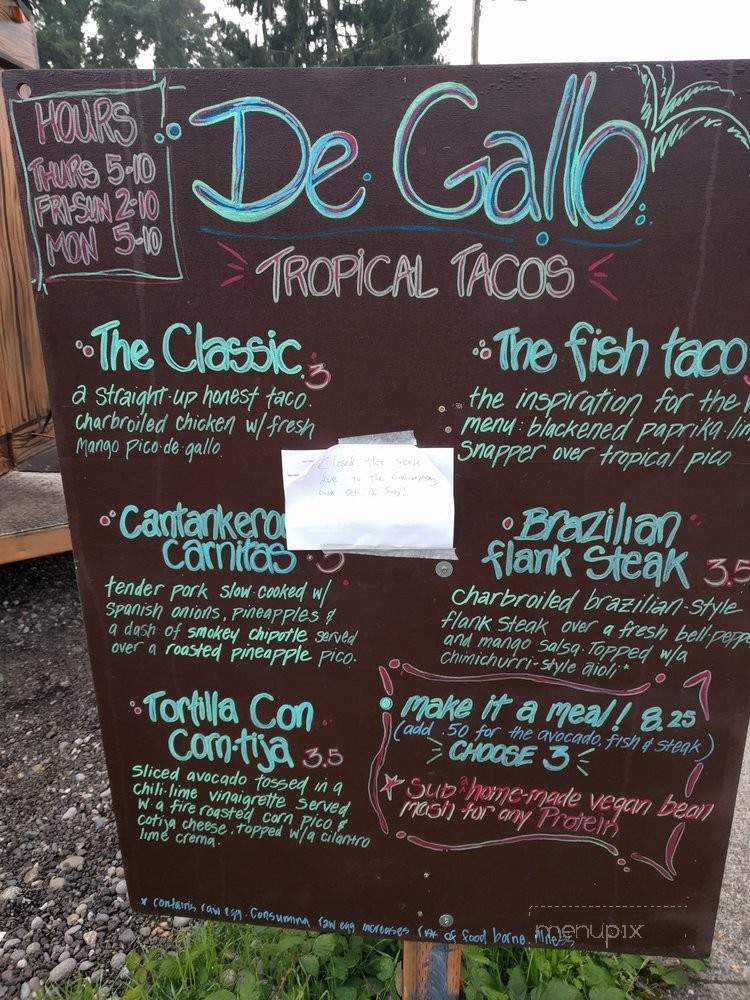 HOURS
THURS 5-10
FRI-SUN 2-10
MON 5-10
De Gallo
TROPICAL TACOS
The Classic 3
a straight-up honest taco.
charbroiled chicken w/fresh
mango pico-de-gallo
The fish taco
the inspiration for the
menu: blackened paprika
snapper over tropical pico
Closed this week
due to the
Carnitas
tender pork slow-cooked w/
Spanish onions, pineapples &
a dash of smokey chipotle served
over a roasted pineapple pico.
Brazilian
flank steak 3.5
charbroiled brazilian-style
flank steak over a fresh
and mango salsa. Topped w/a
chimichurri-style aioli*
Tortilla Con
Corn-tija 3.5
Sliced avocado tossed in a
chili-lime vinaigrette served
w/a fire roasted corn pico &
cotija cheese. topped w/a cilantro
lime crema.
make it a meal! 8.25
(add .50 for the avocado, fish & steak)
CHOOSE 3
* Sub home-made vegan bean
mash for any Protein
* contains raw egg. Consuming raw egg increases risk of food borne illness
menupix